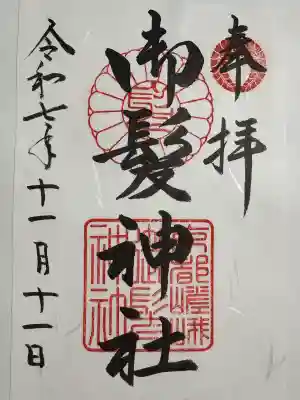 奉拝
御髪神社
令和七年十一月十一日
京都嵯峨
御髪
神社